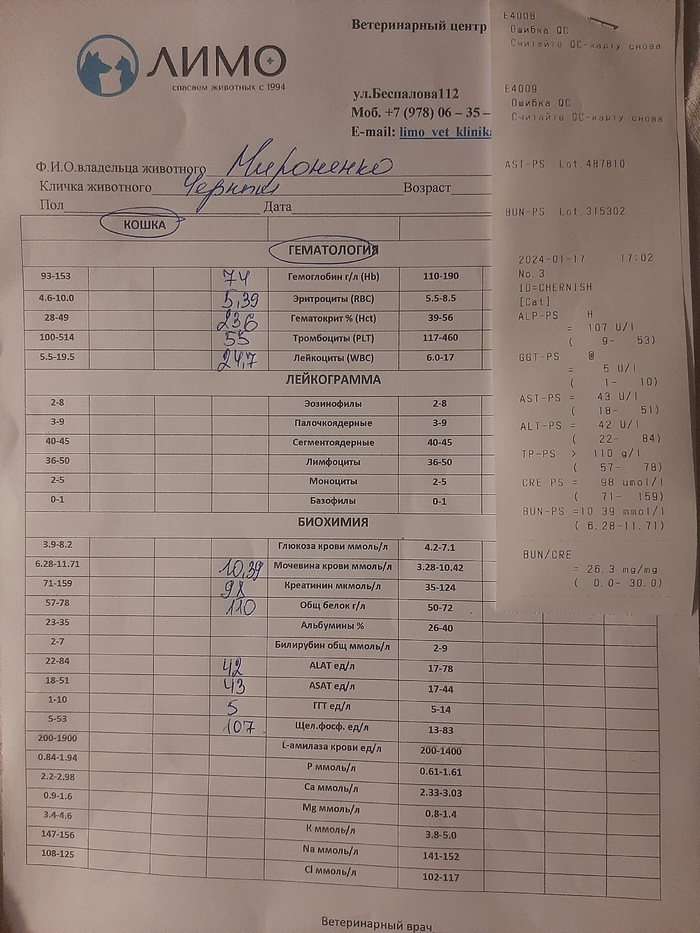 ЛИМО
спасаем животных с 1994
Ветеринарный центр
ул.Беспалова112
Моб. +7 (978) 06 – 35 –
E-mail: limo_vet_klinik
Ф.И.О.владельца животного Мироненко
Кличка животного Черныш Возраст
Пол Дата
КОШКА
ГЕМАТОЛОГИЯ
93-153 74 Гемоглобин г/л (Hb) 110-190
4.6-10.0 5,39 Эритроциты (RBC) 5.5-8.5
28-49 236 Гематокрит % (Hct) 39-56
100-514 55 Тромбоциты (PLT) 117-460
5.5-19.5 24,7 Лейкоциты (WBC) 6.0-17
ЛЕЙКОГРАММА
2-8 Эозинофилы 2-8
3-9 Палочкоядерные 3-9
40-45 Сегментоядерные 40-45
36-50 Лимфоциты 36-50
2-5 Моноциты 2-5
0-1 Базофилы 0-1
БИОХИМИЯ
3.9-8.2 Глюкоза крови ммоль/л 4.2-7.1
6.28-11.71 10,39 Мочевина крови ммоль/л 3.28-10.42
71-159 98 Креатинин мкмоль/л 35-124
57-78 110 Общ белок г/л 50-72
23-35 Альбумины % 26-40
2-7 Билирубин общ ммоль/л 2-9
22-84 42 ALAT ед/л 17-78
18-51 43 ASAT ед/л 17-44
1-10 5 ГГТ ед/л 5-14
5-53 107 Щел.фосф. ед/л 13-83
200-1900 L-амилаза крови ед/л 200-1400
0.84-1.94 P ммоль/л 0.61-1.61
2.2-2.98 Ca ммоль/л 2.33-3.03
0.9-1.6 Mg ммоль/л 0.8-1.4
3.4-4.6 K ммоль/л 3.8-5.0
147-156 Na ммоль/л 141-152
108-125 Cl ммоль/л 102-117
Ветеринарный врач
E4008
Ошибка QC
Считайте QC-карту снова
E4009
Ошибка QC
Считайте QC-карту снова
AST-PS Lot.487810
BUN-PS Lot.315302
2024-01-17 17:02
No.3
ID=CHERNISH
[Cat]
ALP-PS H
= 107 U/l
( 9- 53)
GGT-PS @
= 5 U/l
( 1- 10)
AST-PS = 43 U/l
( 18- 51)
ALT-PS = 42 U/l
( 22- 84)
TP-PS > 110 g/l
( 57- 78)
CRE-PS = 98 umol/l
( 71- 159)
BUN-PS =10.39 mmol/l
( 6.28-11.71)
BUN/CRE
= 26.3 mg/mg
( 0.0- 30.0)